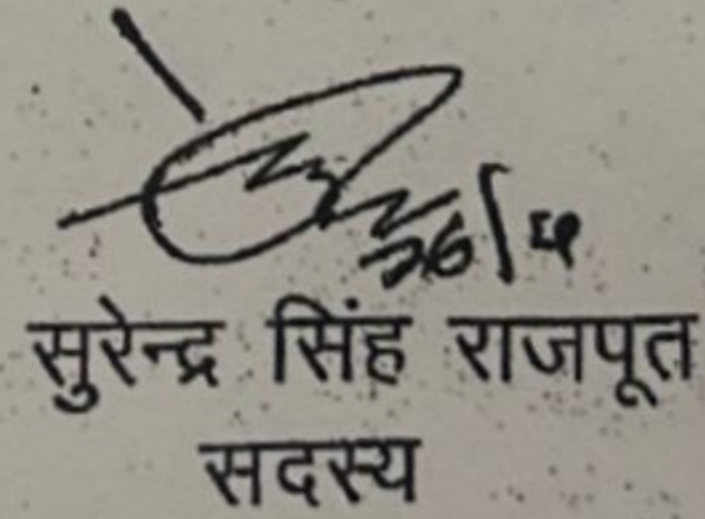 26/4
सुरेन्द्र सिंह राजपूत
सदस्य